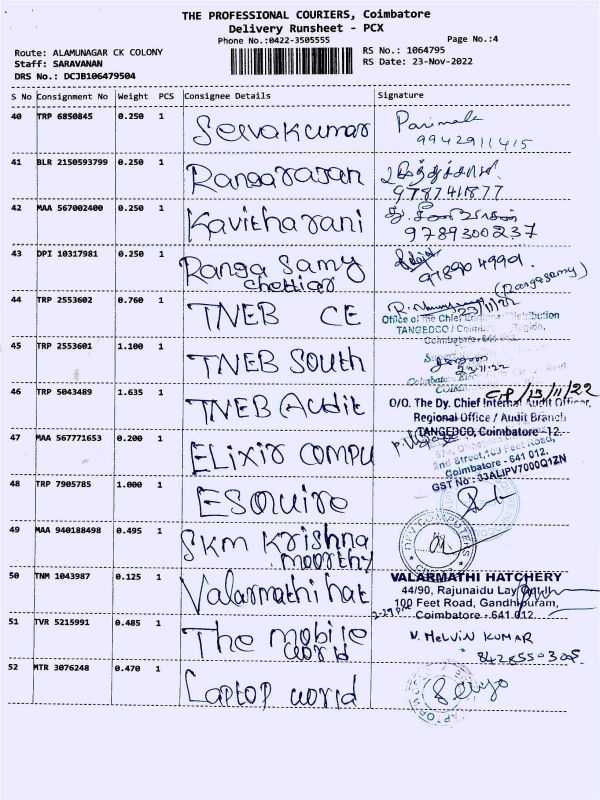 THE PROFESSIONAL COURIERS, Coimbatore
Delivery Runsheet - PCX
Phone No.:0422-3505555
Page No.:4
Route: ALAMUNAGAR CK COLONY
RS No.: 1064795
Staff: SARAVANAN
RS Date: 23-Nov-2022
DRS No.: DCJB106479504
S No Consignment No Weight PCS Consignee Details Signature
40 TRP 6850845 0.250 1 Selvakumar Parimala
9942911415
41 BLR 2150593799 0.250 1 Rangarajan
9787741877
42 MAA 567002400 0.250 1 Kavitharani
9789300237
43 DPI 10317981 0.250 1 Ranga Samy
Chettiar
(Rangasamy)
44 TRP 2553602 0.760 1 TNEB CE
23/11/22
Office of the Chief Engineer Distribution
TANGEDCO / Coimbatore Region,
Coimbatore - 641 012.
45 TRP 2553601 1.100 1 TNEB South
23.11.22
46 TRP 5043489 1.635 1 TNEB Audit
O/O. The Dy. Chief Internal Audit Officer,
Regional Office / Audit Branch
TANGEDCO, Coimbatore - 12.
47 MAA 567771653 0.200 1 Elixir compu
2nd Street, 103 Feet Road,
Coimbatore - 641 012.
GST No : 33ALIPV7000Q1ZN
48 TRP 7905785 1.000 1 Esquire
49 MAA 940188498 0.495 1 SKM Krishna
moorthy
COMPUTERS
50 TNM 1043987 0.125 1 Valarmathi hat
VALARMATHI HATCHERY
44/90, Rajunaidu Layout
100 Feet Road, Gandhipuram,
Coimbatore - 641 012
51 TVR 5215991 0.485 1 The mobile
world
V. MELVIN KUMAR
52 MTR 3076248 0.470 1 Laptop world